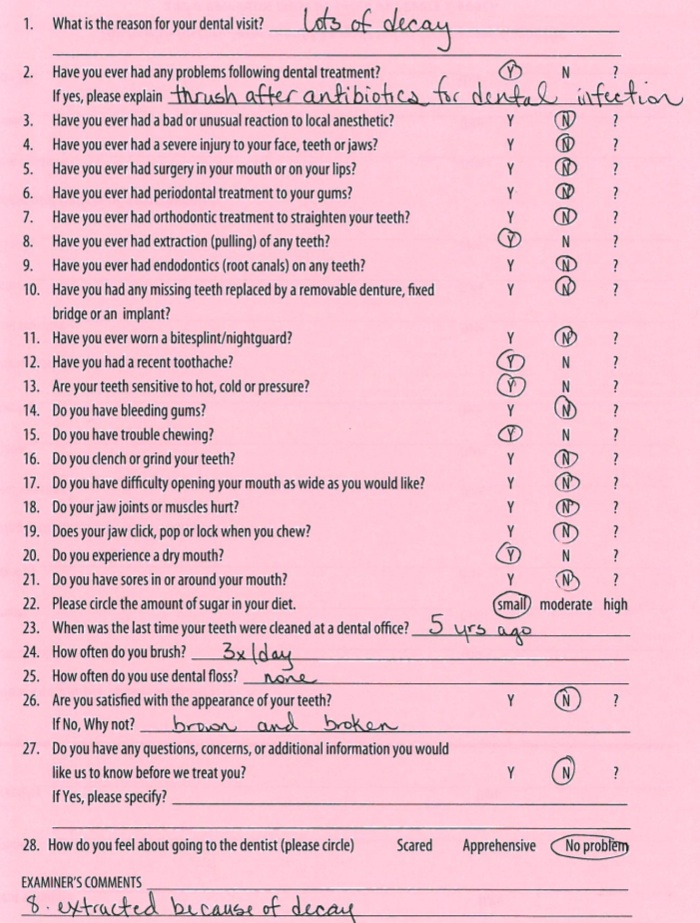 1. What is the reason for your dental visit? lots of decay
2. Have you ever had any problems following dental treatment? Y N ?
If yes, please explain thrush after antibiotics for dental infection
3. Have you ever had a bad or unusual reaction to local anesthetic? Y N ?
4. Have you ever had a severe injury to your face, teeth or jaws? Y N ?
5. Have you ever had surgery in your mouth or on your lips? Y N ?
6. Have you ever had periodontal treatment to your gums? Y N ?
7. Have you ever had orthodontic treatment to straighten your teeth? Y N ?
8. Have you ever had extraction (pulling) of any teeth? Y N ?
9. Have you ever had endodontics (root canals) on any teeth? Y N ?
10. Have you had any missing teeth replaced by a removable denture, fixed Y N ?
bridge or an implant?
11. Have you ever worn a bitesplint/nightguard? Y N ?
12. Have you had a recent toothache? Y N ?
13. Are your teeth sensitive to hot, cold or pressure? Y N ?
14. Do you have bleeding gums? Y N ?
15. Do you have trouble chewing? Y N ?
16. Do you clench or grind your teeth? Y N ?
17. Do you have difficulty opening your mouth as wide as you would like? Y N ?
18. Do your jaw joints or muscles hurt? Y N ?
19. Does your jaw click, pop or lock when you chew? Y N ?
20. Do you experience a dry mouth? Y N ?
21. Do you have sores in or around your mouth? Y N ?
22. Please circle the amount of sugar in your diet. small moderate high
23. When was the last time your teeth were cleaned at a dental office? 5 yrs ago
24. How often do you brush? 3x/day
25. How often do you use dental floss? none
26. Are you satisfied with the appearance of your teeth? Y N ?
If No, Why not? brown and broken
27. Do you have any questions, concerns, or additional information you would
like us to know before we treat you? Y N ?
If Yes, please specify?
28. How do you feel about going to the dentist (please circle) Scared Apprehensive No problem
EXAMINER'S COMMENTS
8. extracted because of decay